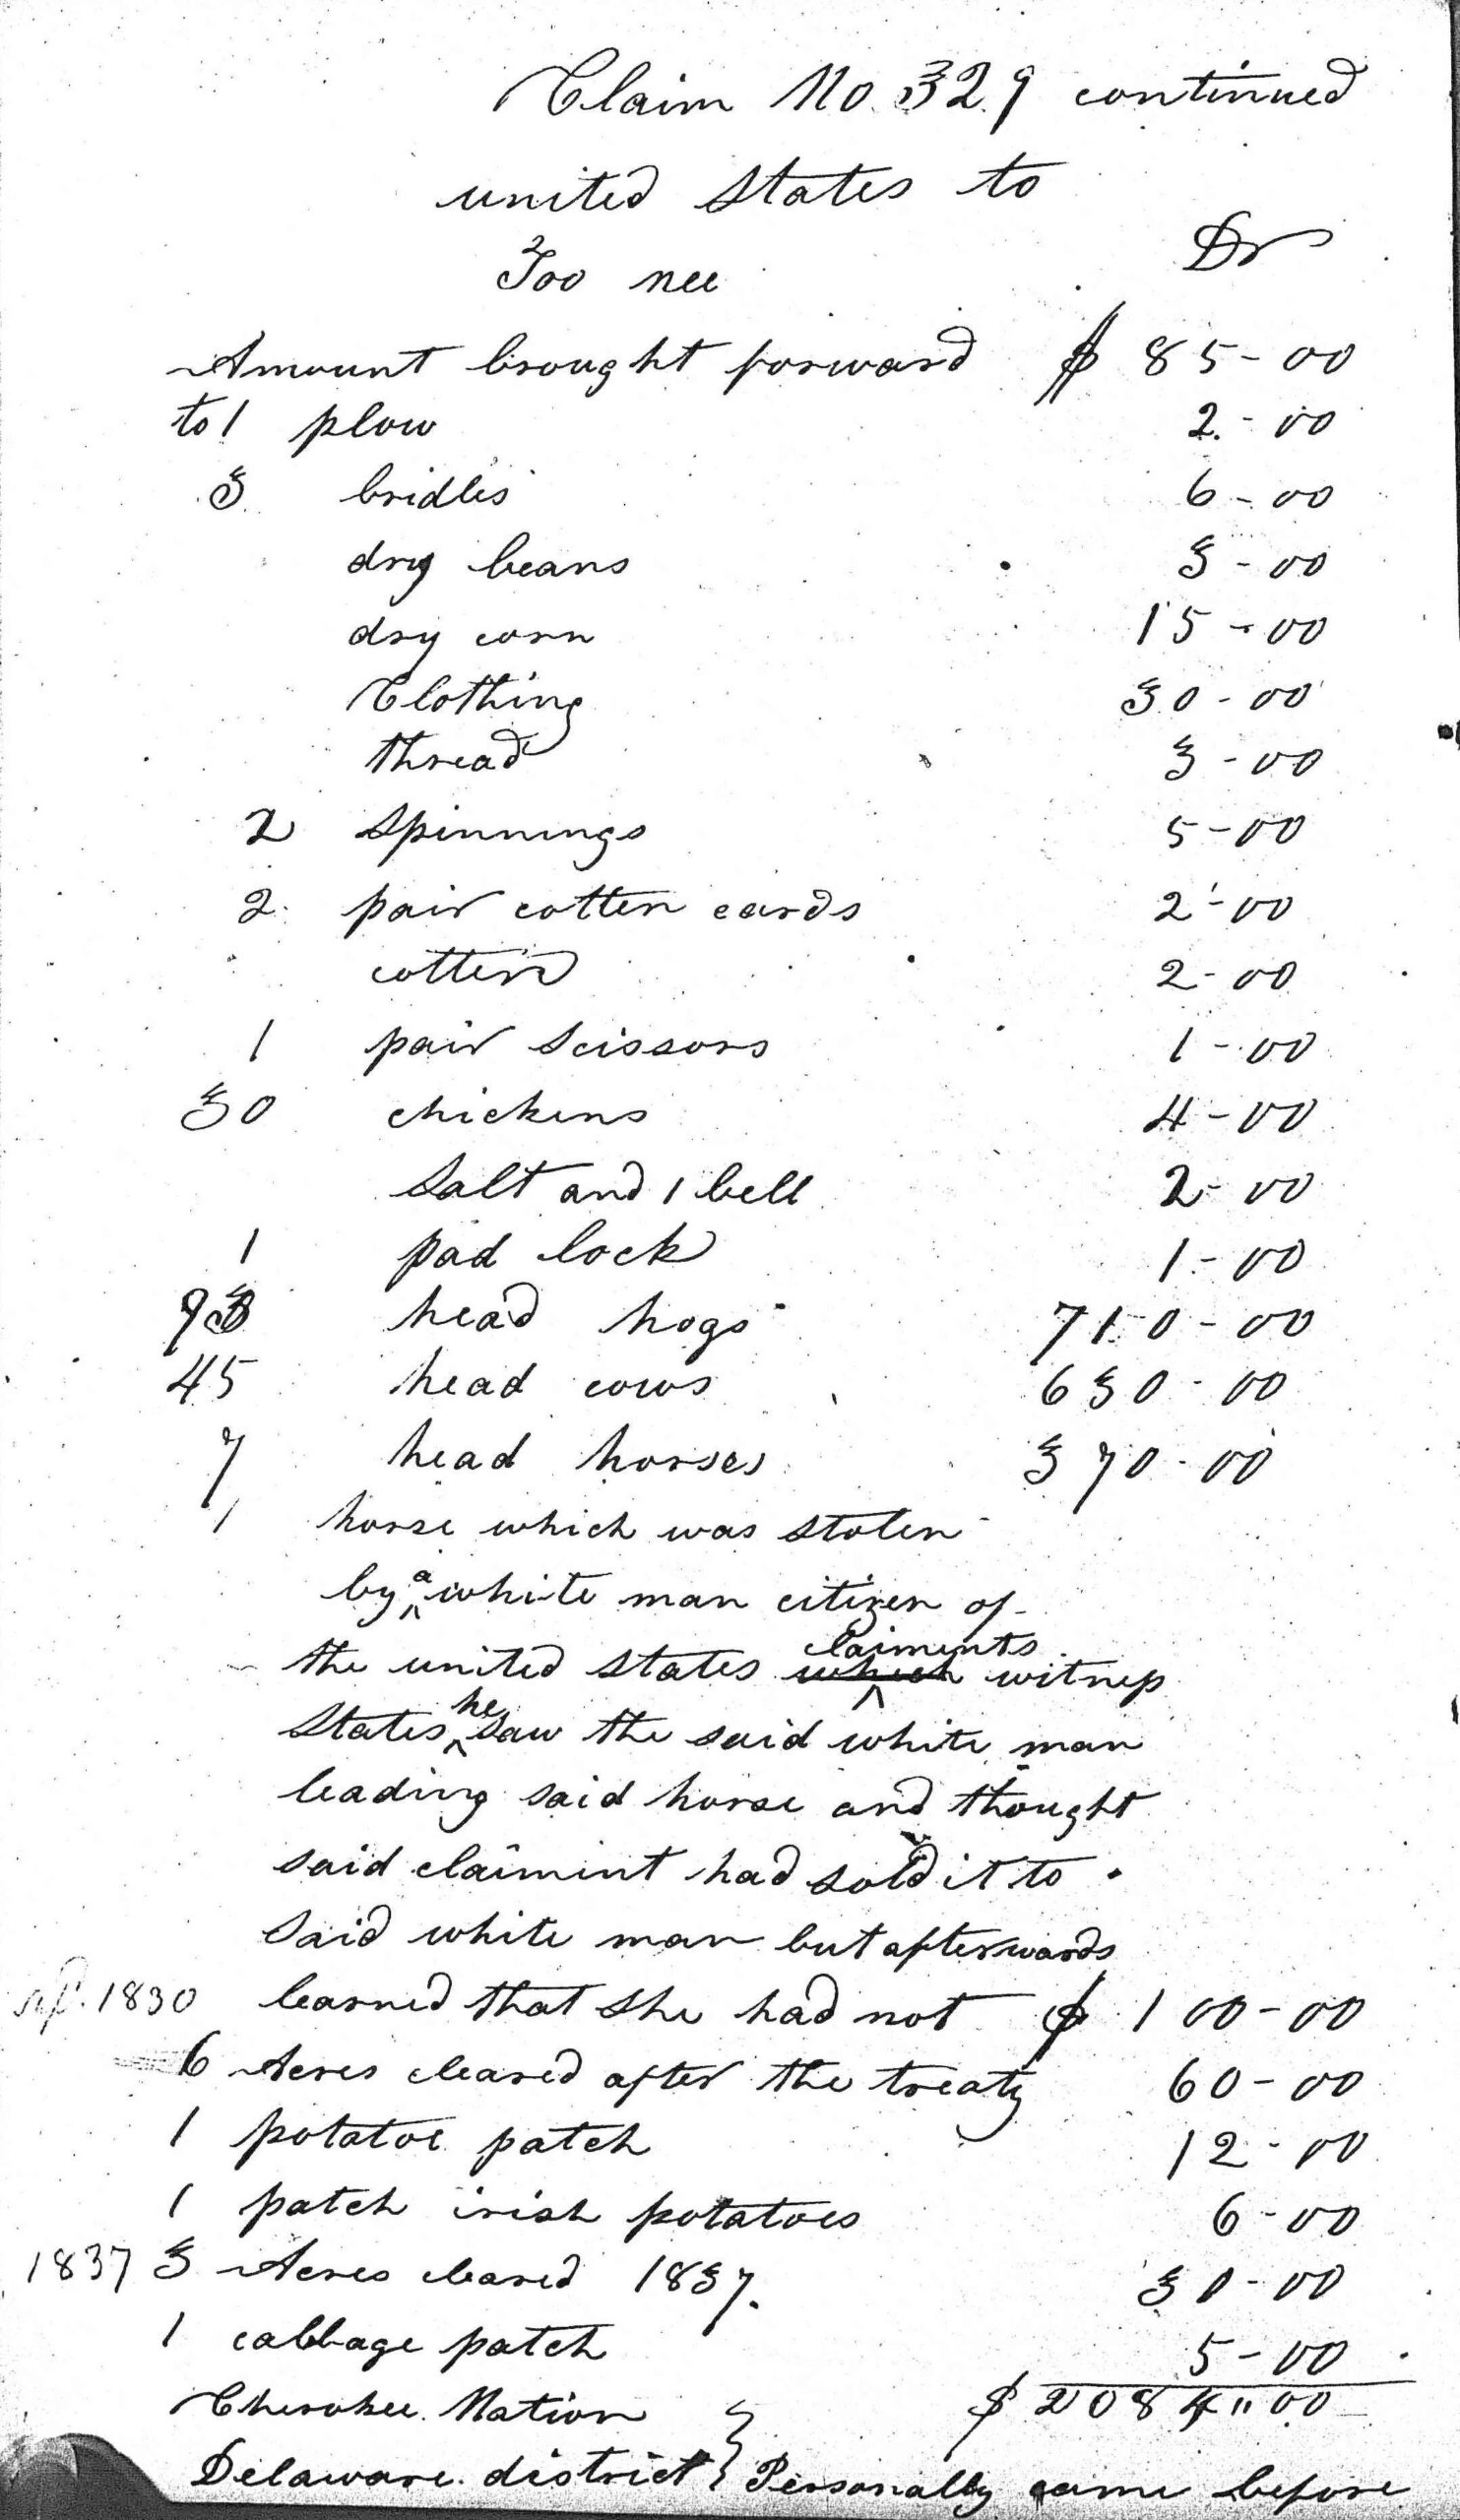 Claim No. 329 continued
united States to
Dr
Too nee
Amount brought forward $ 85-00
to 1 plow 2-00
3 bridles 6-00
dry beans 3-00
dry corn 15-00
Clothing 30-00
thread 3-00
2 Spinnings 5-00
2 pair cotten cards 2-00
cotten 2-00
1 pair scissors 1-00
30 chickens 4-00
Salt and 1 bell 2-00
1 pad lock 1-00
head hogs 710-00
45 head cows 630-00
7 head horses 370-00
1 horse which was stolen
by a white man citizen of
the united States which claiments witness
States he saw the said white man
leading said horse and thought
said claimint had sold it to
said white man but afterwards
1830 learned that she had not $ 100-00
6 Acres cleared after the treaty 60-00
1 potatoe patch 12-00
1 patch irish potatoes 6-00
1837 3 Acres cleared 1837. 30-00
1 cabbage patch 5-00
Cherokee Nation } $ 2084"00
Delaware district } Personally came before